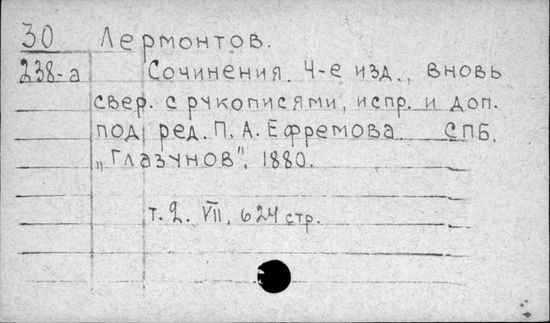 30 Лермонтов.
238-а Сочинения. 4-е изд., вновь
свер. с рукописями, испр. и доп.
под ред. П. А. Ефремова. СПБ.
„Глазунов". 1880.
т. 2. VII, 624 стр.